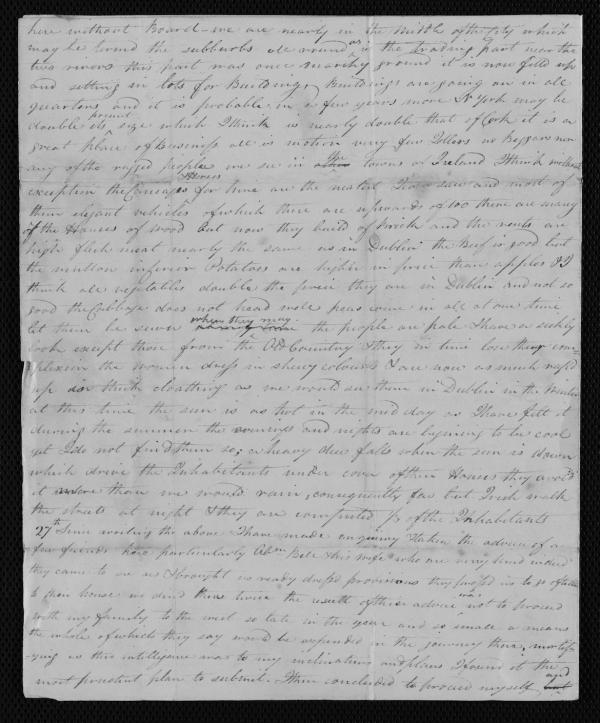 here without Board - we are nearly in the middle of the City which
may be termd the subburbs all round as is the trading part near the
two rivers this part was once marshy ground it is now filld up
and setting in lots for Buildings, Buildings are going on in all
quarters and it is probable in a few years more N York may be
double its present size which I think is nearly double that of Cork it is a
great place of Business all is motion very few Idlers no Beggars nor
any of the raged people we see in the towns in Ireland I think without
exception the Carriages & Horses for hire are the neatest I ever saw and most of
them elegant vehicles of which there are upwards of 100 there are many
of the Houses of wood but now they build of Brick and the rents are
high flesh meat nearly the same as in Dublin the Beef is good but
the mutton inferior Potatoes are higher in price than apples I
think all vegetables double the price they are in Dublin and not so
good the Cabbage does not head well peas come in all at one time
let them be sewn when they may the people are pale & have a sickly
look except those from the Old Country & they in time lose their com-
plexion the women dress in shewy colours & are now as much wrap'd
up in thick cloathing as we would see them in Dublin in the Winter
at this time the sun is as hot in the mid day as I have felt it
during the summer the evenings and nights are begining to be cool
yet I do not find them so, a heavy dew falls when the sun is down
which drive the Inhabitants under cover of their Houses they avoid
it more than we would rain, consequently few but Irish walk
the streets at night & they are computed of the Inhabitants
27th Since writing the above I have made enquiry & taken the advice of a
few friends here particularly Abm Bell & his wife who are very kind indeed
they came to see us & brought us ready dress'd provisions they press'd us to go often
to their house we dined there twice the result of their advice was not to proceed
with my family to the west so late in the year and so small a means
the whole of which they say would be expended in the journey there, mortify
-ying as this intelligence was to my inclinations and plans I found it the
most prudent plan to submit. I then concluded to proceed myself, and